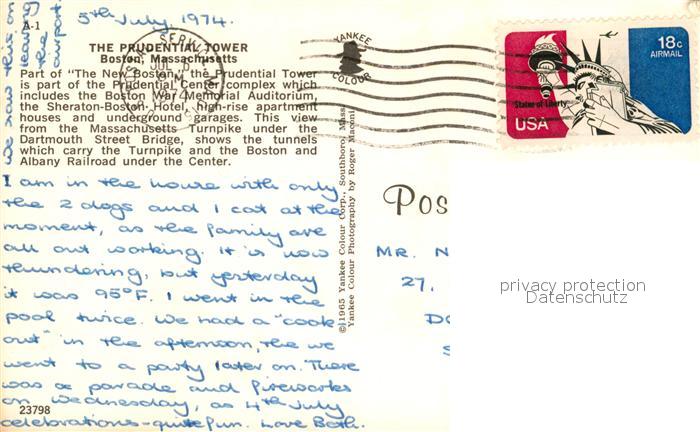 5th July, 1974.
we saw this on
leaving the
airport.
A-1
THE PRUDENTIAL TOWER
Boston, Massachusetts
Part of "The New Boston," the Prudential Tower
is part of the Prudential Center complex which
includes the Boston War Memorial Auditorium,
the Sheraton-Boston Hotel, high-rise apartment
houses and underground garages. This view
from the Massachusetts Turnpike under the
Dartmouth Street Bridge, shows the tunnels
which carry the Turnpike and the Boston and
Albany Railroad under the Center.
I am in the house with only
the 2 dogs and 1 cat at the
moment, as the family are
all out working. It is now
thundering, but yesterday
it was 95°F. I went in the
pool twice. We had a "cook
out" in the afternoon, the we
went to a party later on. There
was a parade and fireworks
on Wednesday, as 4th July
celebrations - quite fun. Love Beth.
23798
©1965 Yankee Colour Corp., Southboro, Mass.
Yankee Colour Photography by Roger Macini
YANKEE
COLOUR
SERVICE
JUL
PM
18c
AIRMAIL
Statue of Liberty
USA
Pos
MR. N
27,
DO
S
privacy protection
Datenschutz